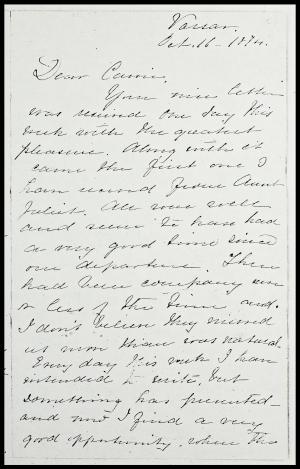 Vassar.
Oct. 16 - 1874.
Dear Carrie,
Your nice letter
was received one day this
week with the greatest
pleasure. Along with it
came the first one I
have received from Aunt
Juliet. All were well
and seem to have had
a very good time since
our departure. They
had been company more
or less of the time and
I don't believe they missed
us more than was natural
Every day this week I have
intended to write, but
something has prevented
and now I find a very
good opportunity, when the